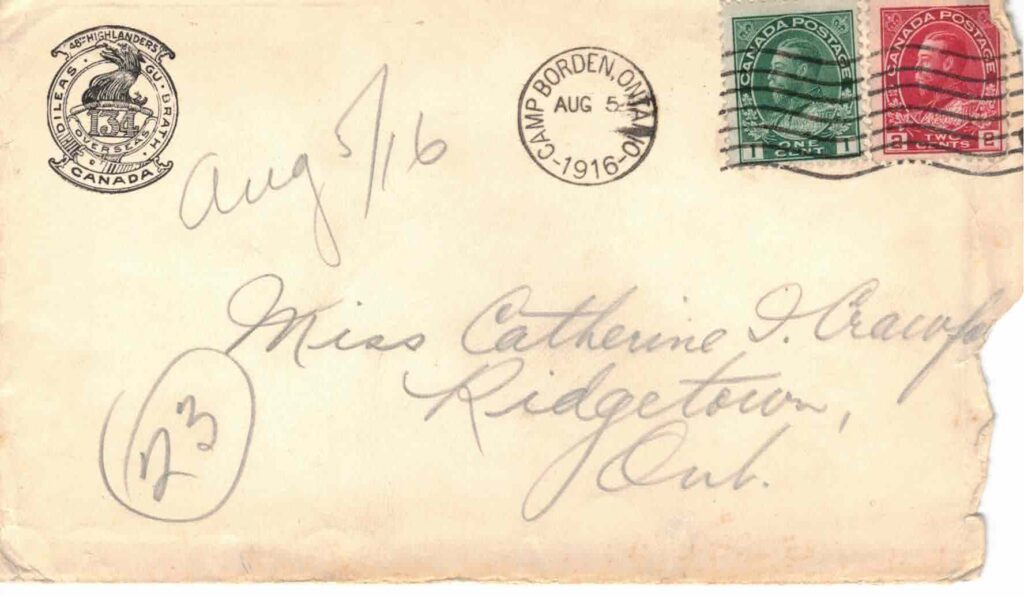 48TH HIGHLANDERS
DILEAS GU BRATH
134
OVERSEAS
CANADA
CAMP BORDEN, ONTARIO
AUG 5
1916
CANADA POSTAGE
1 ONE CENT 1
CANADA POSTAGE
2 TWO CENTS 2
Aug 5/16
Miss Catherine I. Crawfo
Ridgetown,
Ont.
23